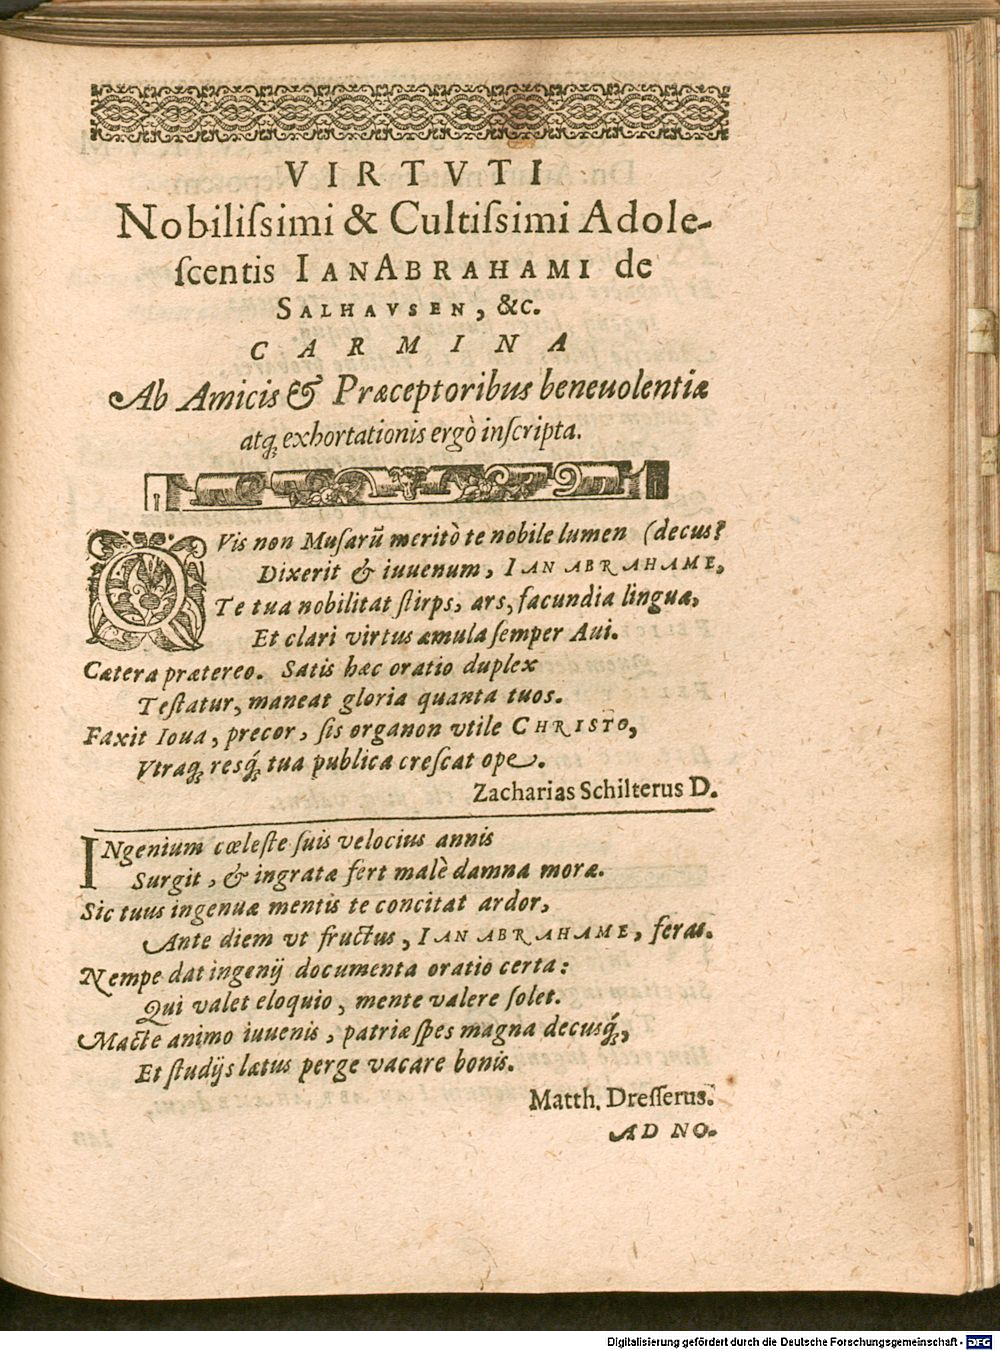 VIRTVTI
Nobiliſsimi & Cultiſsimi Adole-
ſcentis IANABRAHAMI de
SALHAVSEN, &c.
CARMINA
Ab Amicis & Præceptoribus beneuolentiæ
atq́; exhortationis ergò inſcripta.
QVis non Muſarū meritò te nobile lumen (decus?
Dixerit & iuuenum, IANABRAHAME,
Te tua nobilitat ſtirps, ars, facundia linguæ,
Et clari virtus æmula ſemper Aui.
Cætera prætereo. Satis hæc oratio duplex
Teſtatur, maneat gloria quanta tuos.
Faxit Ioua, precor, ſis organon vtile CHRISTO,
Vtraq; resq́; tua publica creſcat ope.
Zacharias Schilterus D.
INgenium cœleſte ſuis velocius annis
Surgit, & ingratæ fert malè damna moræ.
Sic tuus ingenuæ mentis te concitat ardor,
Ante diem vt fructus, IANABRAHAME, feras.
Nempe dat ingenij documenta oratio certa:
Qui valet eloquio, mente valere ſolet.
Macte animo iuuenis, patriæ ſpes magna decusq́;,
Et ſtudijs lætus perge vacare bonis.
Matth. Dreſſerus.
AD NO-
Digitalisierung gefördert durch die Deutsche Forschungsgemeinschaft - DFG